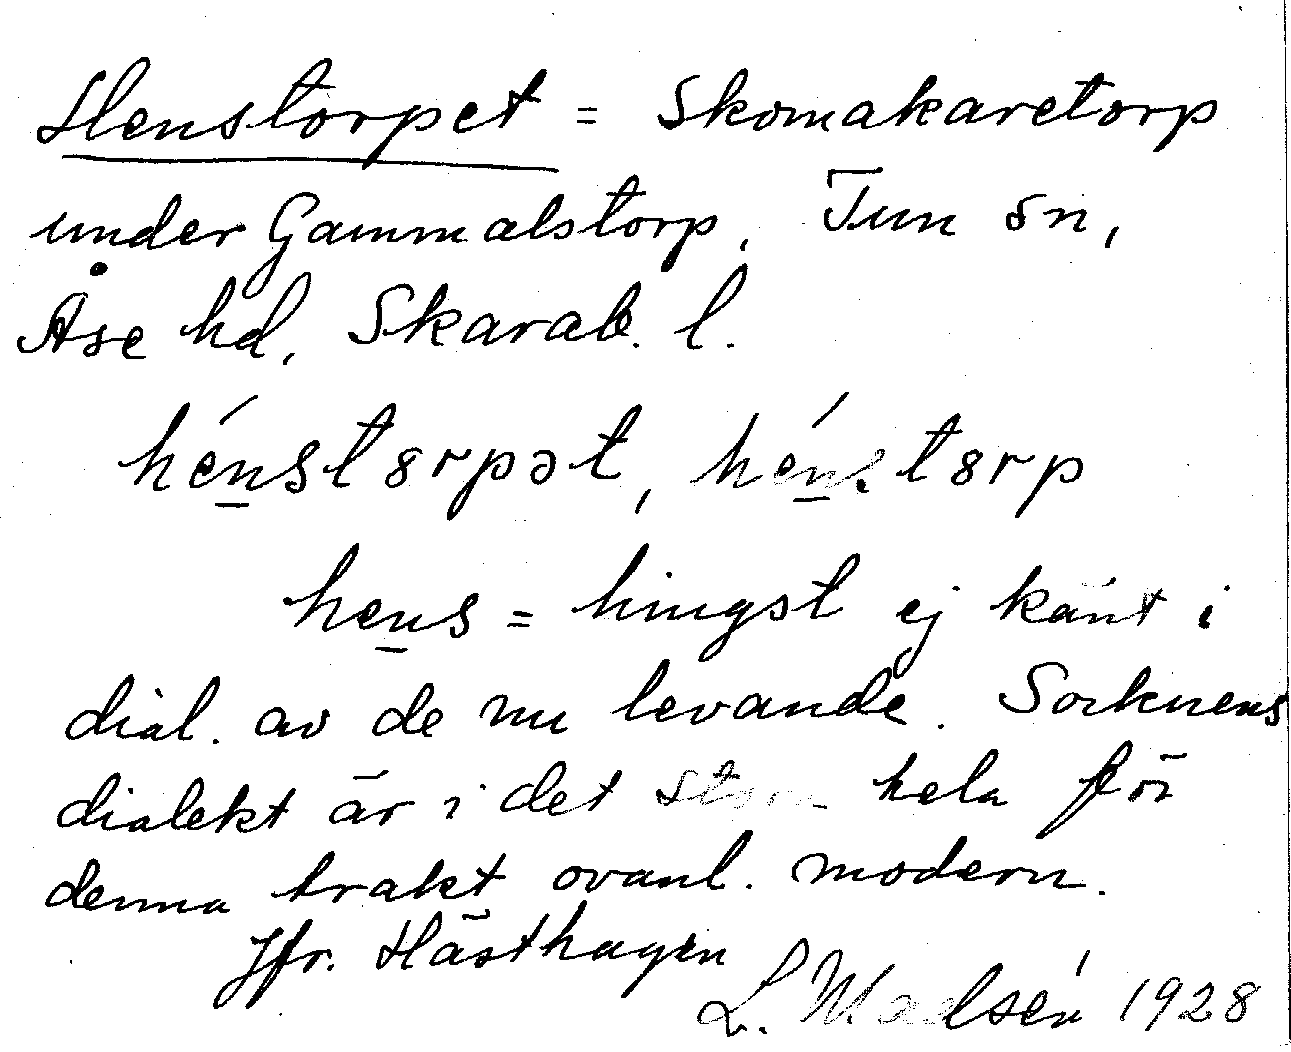 Henstorpet = Skomakaretorp
under Gammalstorp, Tun sn,
Åse hd, Skarab. l.
hénstɔrpət, hénstɔrp
hens = hingst ej känt i
dial. av de nu levande. Socknens
dialekt är i det stora hela för
denna trakt ovanl. modern.
Jfr. Hästhagen
L. 1928